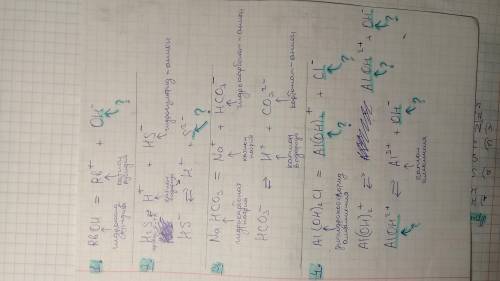 1. RbOH = Rb⁺ + OH⁻ ?
гидроксид рубидия катион рубидия
2. H₂S ⇄ H⁺ + HS⁻
катион водорода гидросульфид-анион
HS⁻ ⇄ H⁺ + S²⁻ ?
3. NaHCO₃ = Na⁺ + HCO₃⁻
гидрокарбонат натрия катион натрия гидрокарбонат-анион
HCO₃⁻ ⇄ H⁺ + CO₃²⁻
катион водорода карбонат-анион
4. Al(OH)₂Cl = Al(OH)₂⁺ + Cl⁻
? ?
алюминия
Al(OH)₂⁺ ⇄ AlOH²⁺ + OH⁻
? ?
AlOH²⁺ ⇄ Al³⁺ + OH⁻
? катион алюминия ?